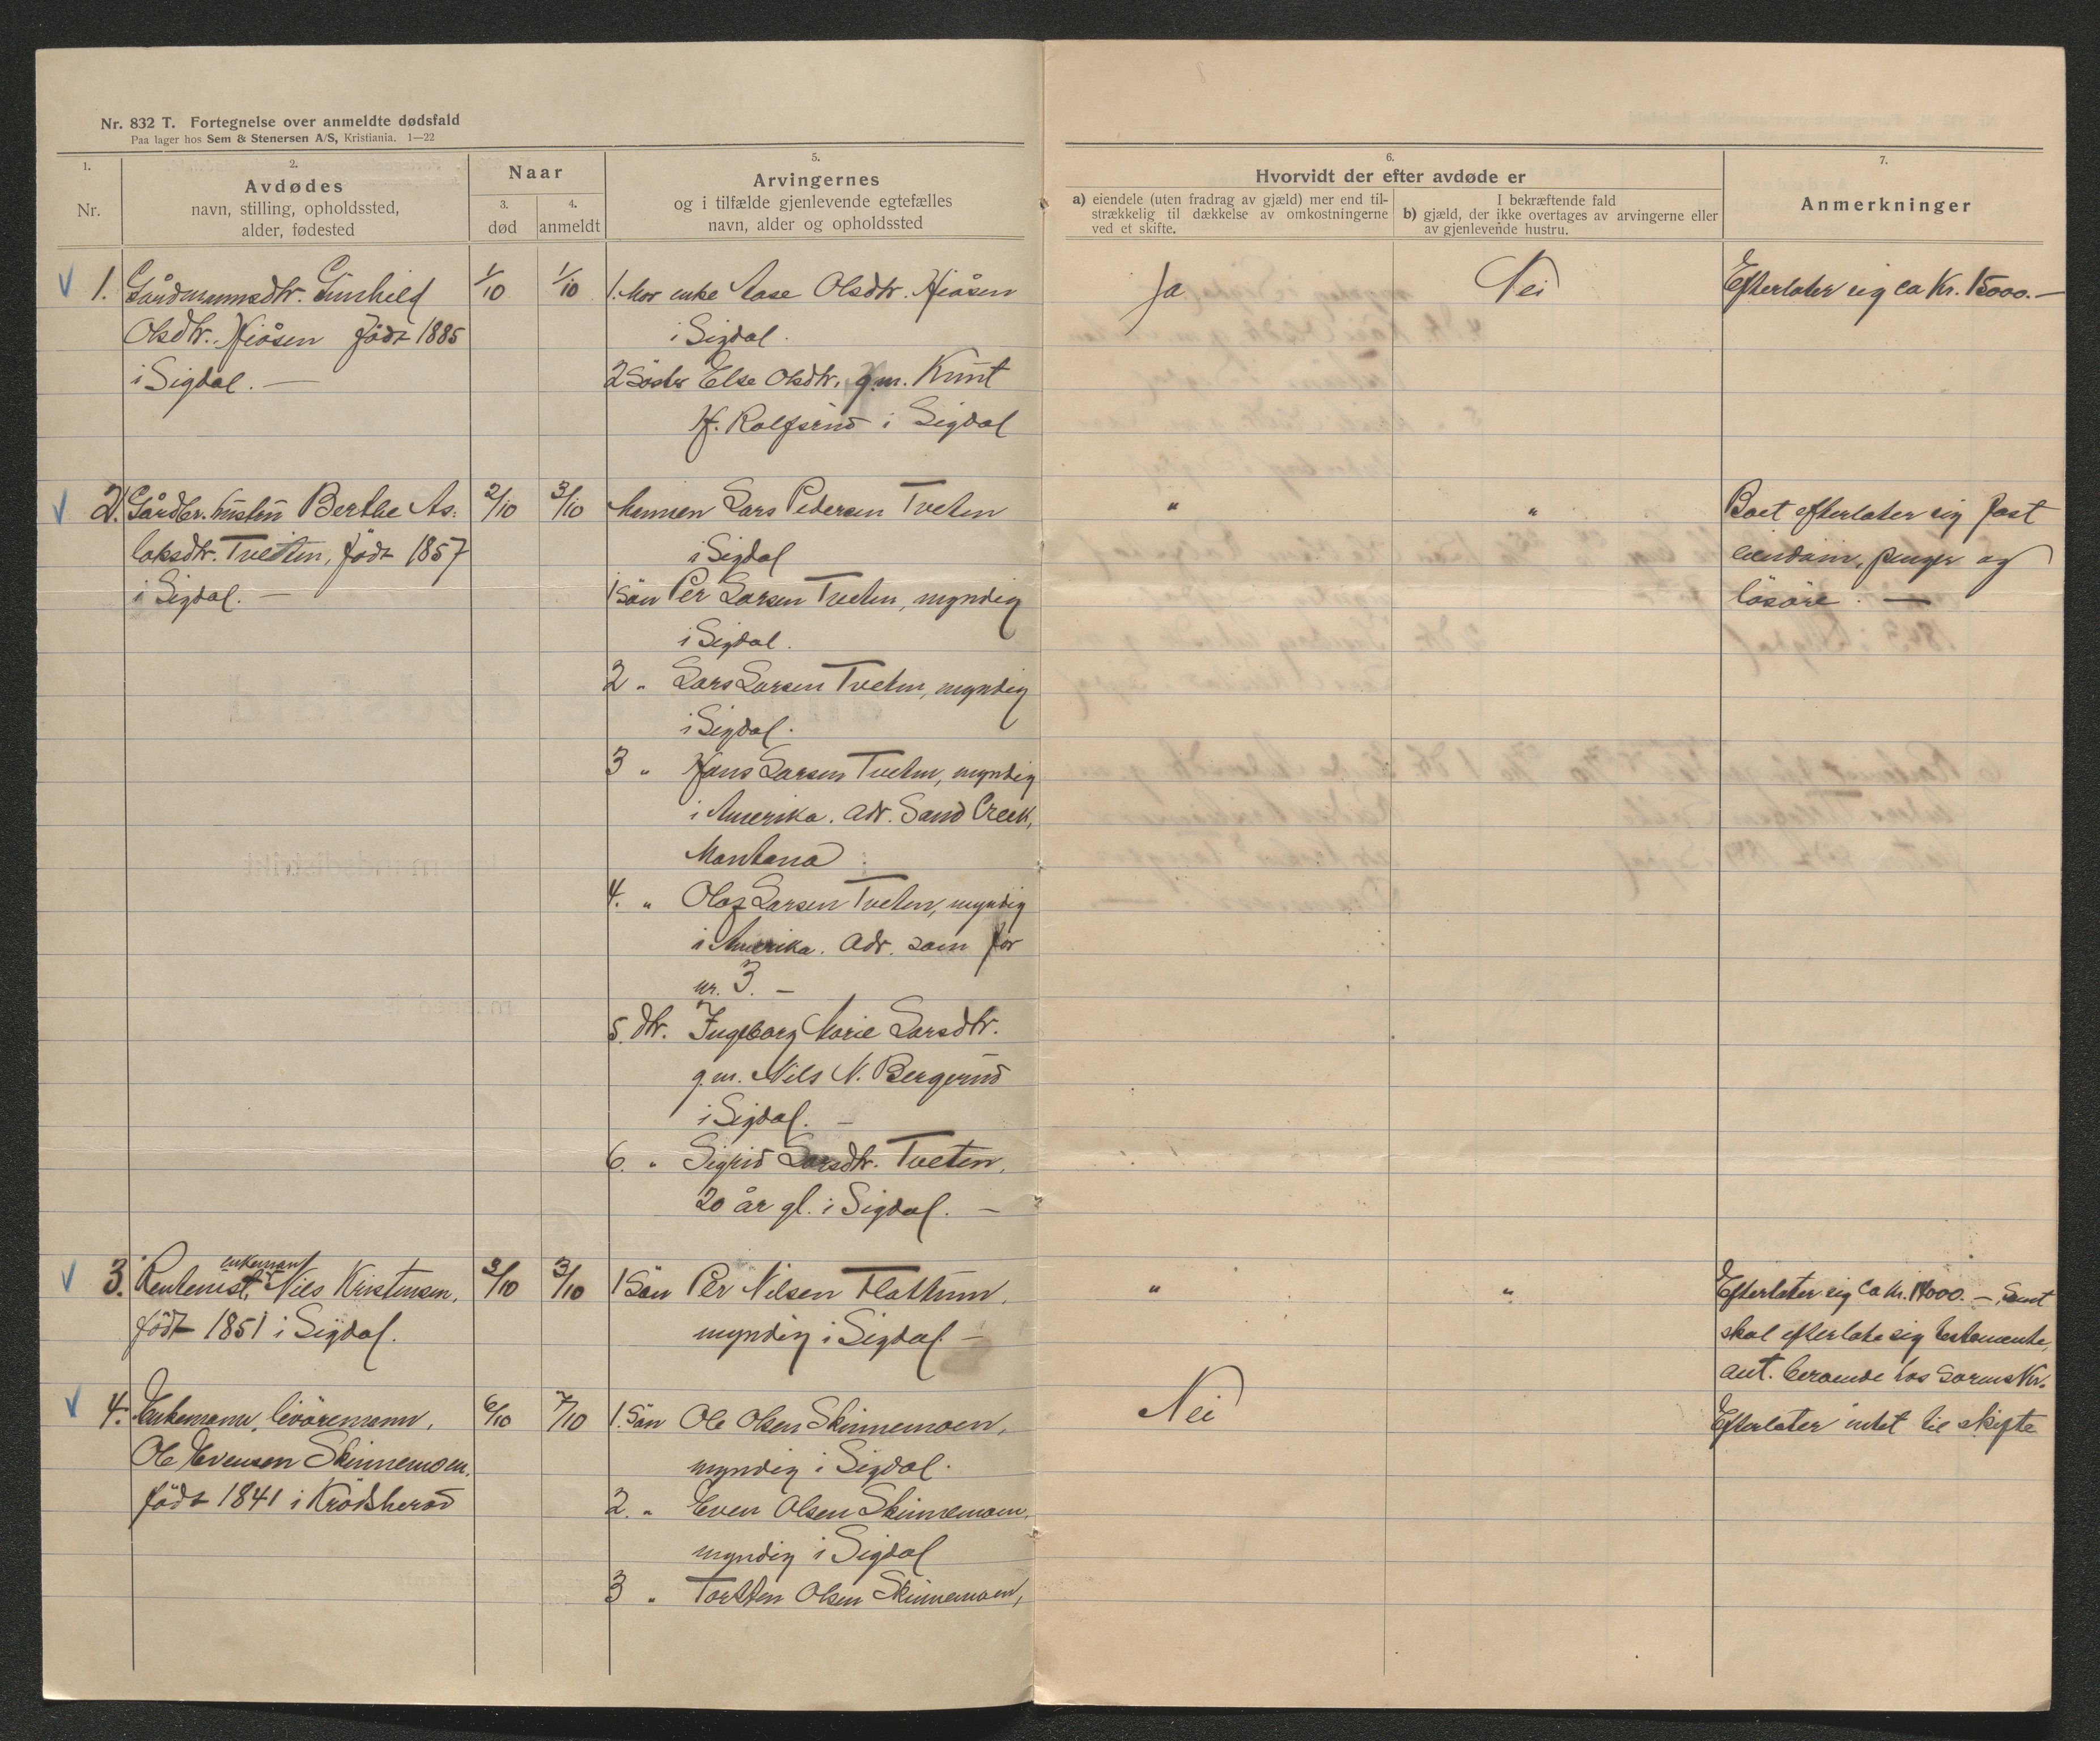 Nr. 832 T. Fortegnelse over anmeldte dødsfald
Paa lager hos Sem & Stenersen A/S, Kristiania. 1—22
1.
Nr.
2.
Avdødes
navn, stilling, opholdssted,
alder, fødested
Naar
3.
død
4.
anmeldt
5.
Arvingernes
og i tilfælde gjenlevende egtefælles
navn, alder og opholdssted
6.
Hvorvidt der efter avdøde er
a) eiendele (uten fradrag av gjæld) mer end til-
strækkelig til dækkelse av omkostningerne
ved et skifte.
I bekræftende fald
b) gjæld, der ikke overtages av arvingerne eller
av gjenlevende hustru.
7.
Anmerkninger
1. Gårdmannsdtr. Gunhild
Olsdtr. Hiåsen født 1885
i Sigdal. —
1/10
1/10
1. Mor enke Aase Olsdtr. Hiåsen
i Sigdal.
2 Søster Else Olsdtr. g.m. Knut
H. Rolfsrud i Sigdal
Ja
Nei
Efterlater sig ca Kr. 15000.—
2. Gårdbr. hustru Berthe As-
laksdtr. Tveiten, født 1857
i Sigdal. —
2/10
3/10
Mannen Lars Pedersen Tveten
i Sigdal
1 Søn Per Larsen Tveten, myndig
i Sigdal.
2 " Lars Larsen Tveten, myndig
i Sigdal.
3 " Hans Larsen Tveten, myndig
i Amerika. Adr. Sand Creek,
Montana
4. " Olaf Larsen Tveten, myndig
i Amerika. Adr. som for
nr. 3. —
5. dtr. Ingeborg Marie Larsdtr.
g.m. Nils N. Bergerud
i Sigdal. —
6. " Sigrid Larsdtr. Tveten,
20 år gl. i Sigdal. —
"
"
Boet efterlater sig fast
eiendom, penger og
løsøre. —
3. Rentenist, enkemant Nils Kristensen,
født 1851 i Sigdal.
3/10
3/10
1 Søn Per Nilsen Flattum,
myndig i Sigdal. —
"
"
Efterlater sig ca kr. 14000. — Samt
skal efterlate sig testamente,
ant. beroende hos sorenskr.
4. Enkemann, livøremann,
Ole Evensen Skinnemoen,
født 1841 i Krødsherad
6/10
7/10
1. Søn Ole Olsen Skinnemoen,
myndig i Sigdal.
2. " Even Olsen Skinnemoen,
myndig i Sigdal
3 " Torsten Olsen Skinnemoen,
Nei
Efterlater intet til skifte